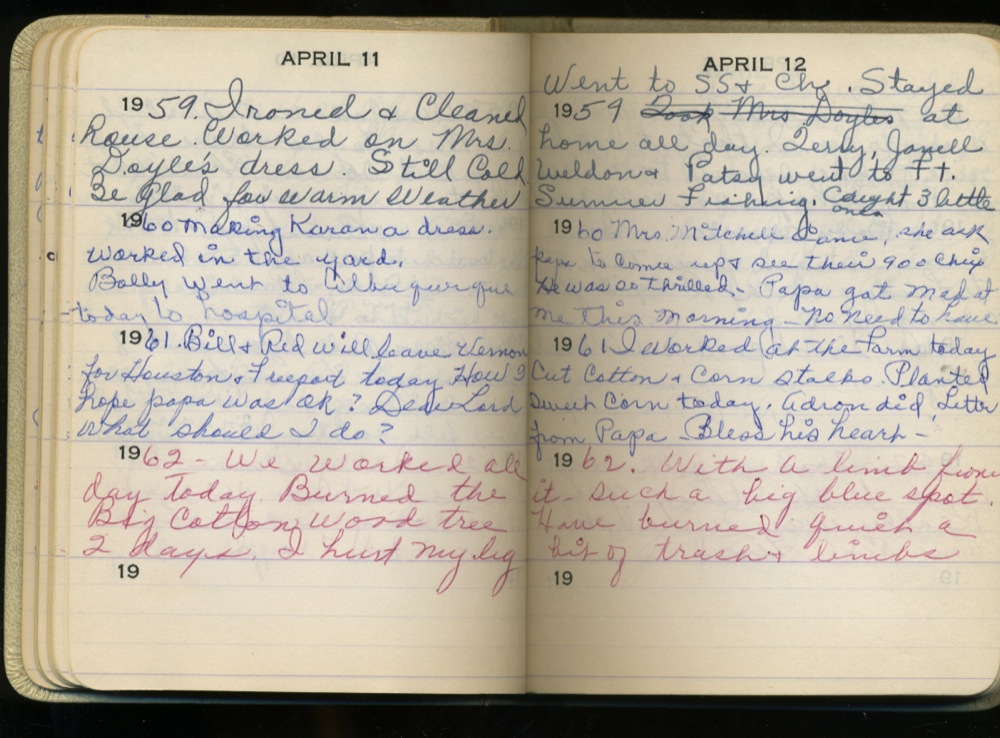 APRIL 11
1959. Ironed & Cleaned
house. Worked on Mrs.
Doyle's dress. Still Cold
Be Glad for warm Weather
1960 Making Karan a dress.
worked in the yard.
Bobby went to Albuquerque
today to hospital
1961. Bill & Red will leave Vernon
for Houston & Freeport today How I
hope papa was ok? Dear Lord
what should I do?
1962 - We worked all
day today. Burned the
Big Cotton Wood tree
2 days. I hurt my leg
19
APRIL 12
Went to SS & Ch. Stayed
1959 Took Mrs Doyles at
home all day. Terry, Janell
Weldon & Patsy went to Ft.
Sumner Fishing. Caught 3 little
ones
1960 Mrs. Mitchell Came, she ask
papa to come up & see their 900 chix
He was so thrilled - Papa got mad at
me this morning - No need to have
1961 I worked at the Farm today
Cut Cotton & Corn stalks. Planted
sweet Corn today. Adron did Letter
from Papa - Bless his heart -
1962. With a limb from
it - such a big blue spot.
Have burned quite a
bit of trash & limbs
19